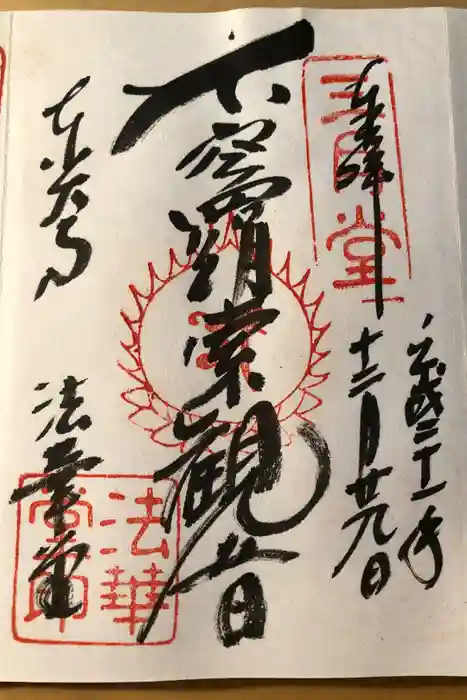 奉拝
三月堂
平成二十一年
十二月廿九日
不空羂索觀音
東大寺
法華堂
法華
堂印